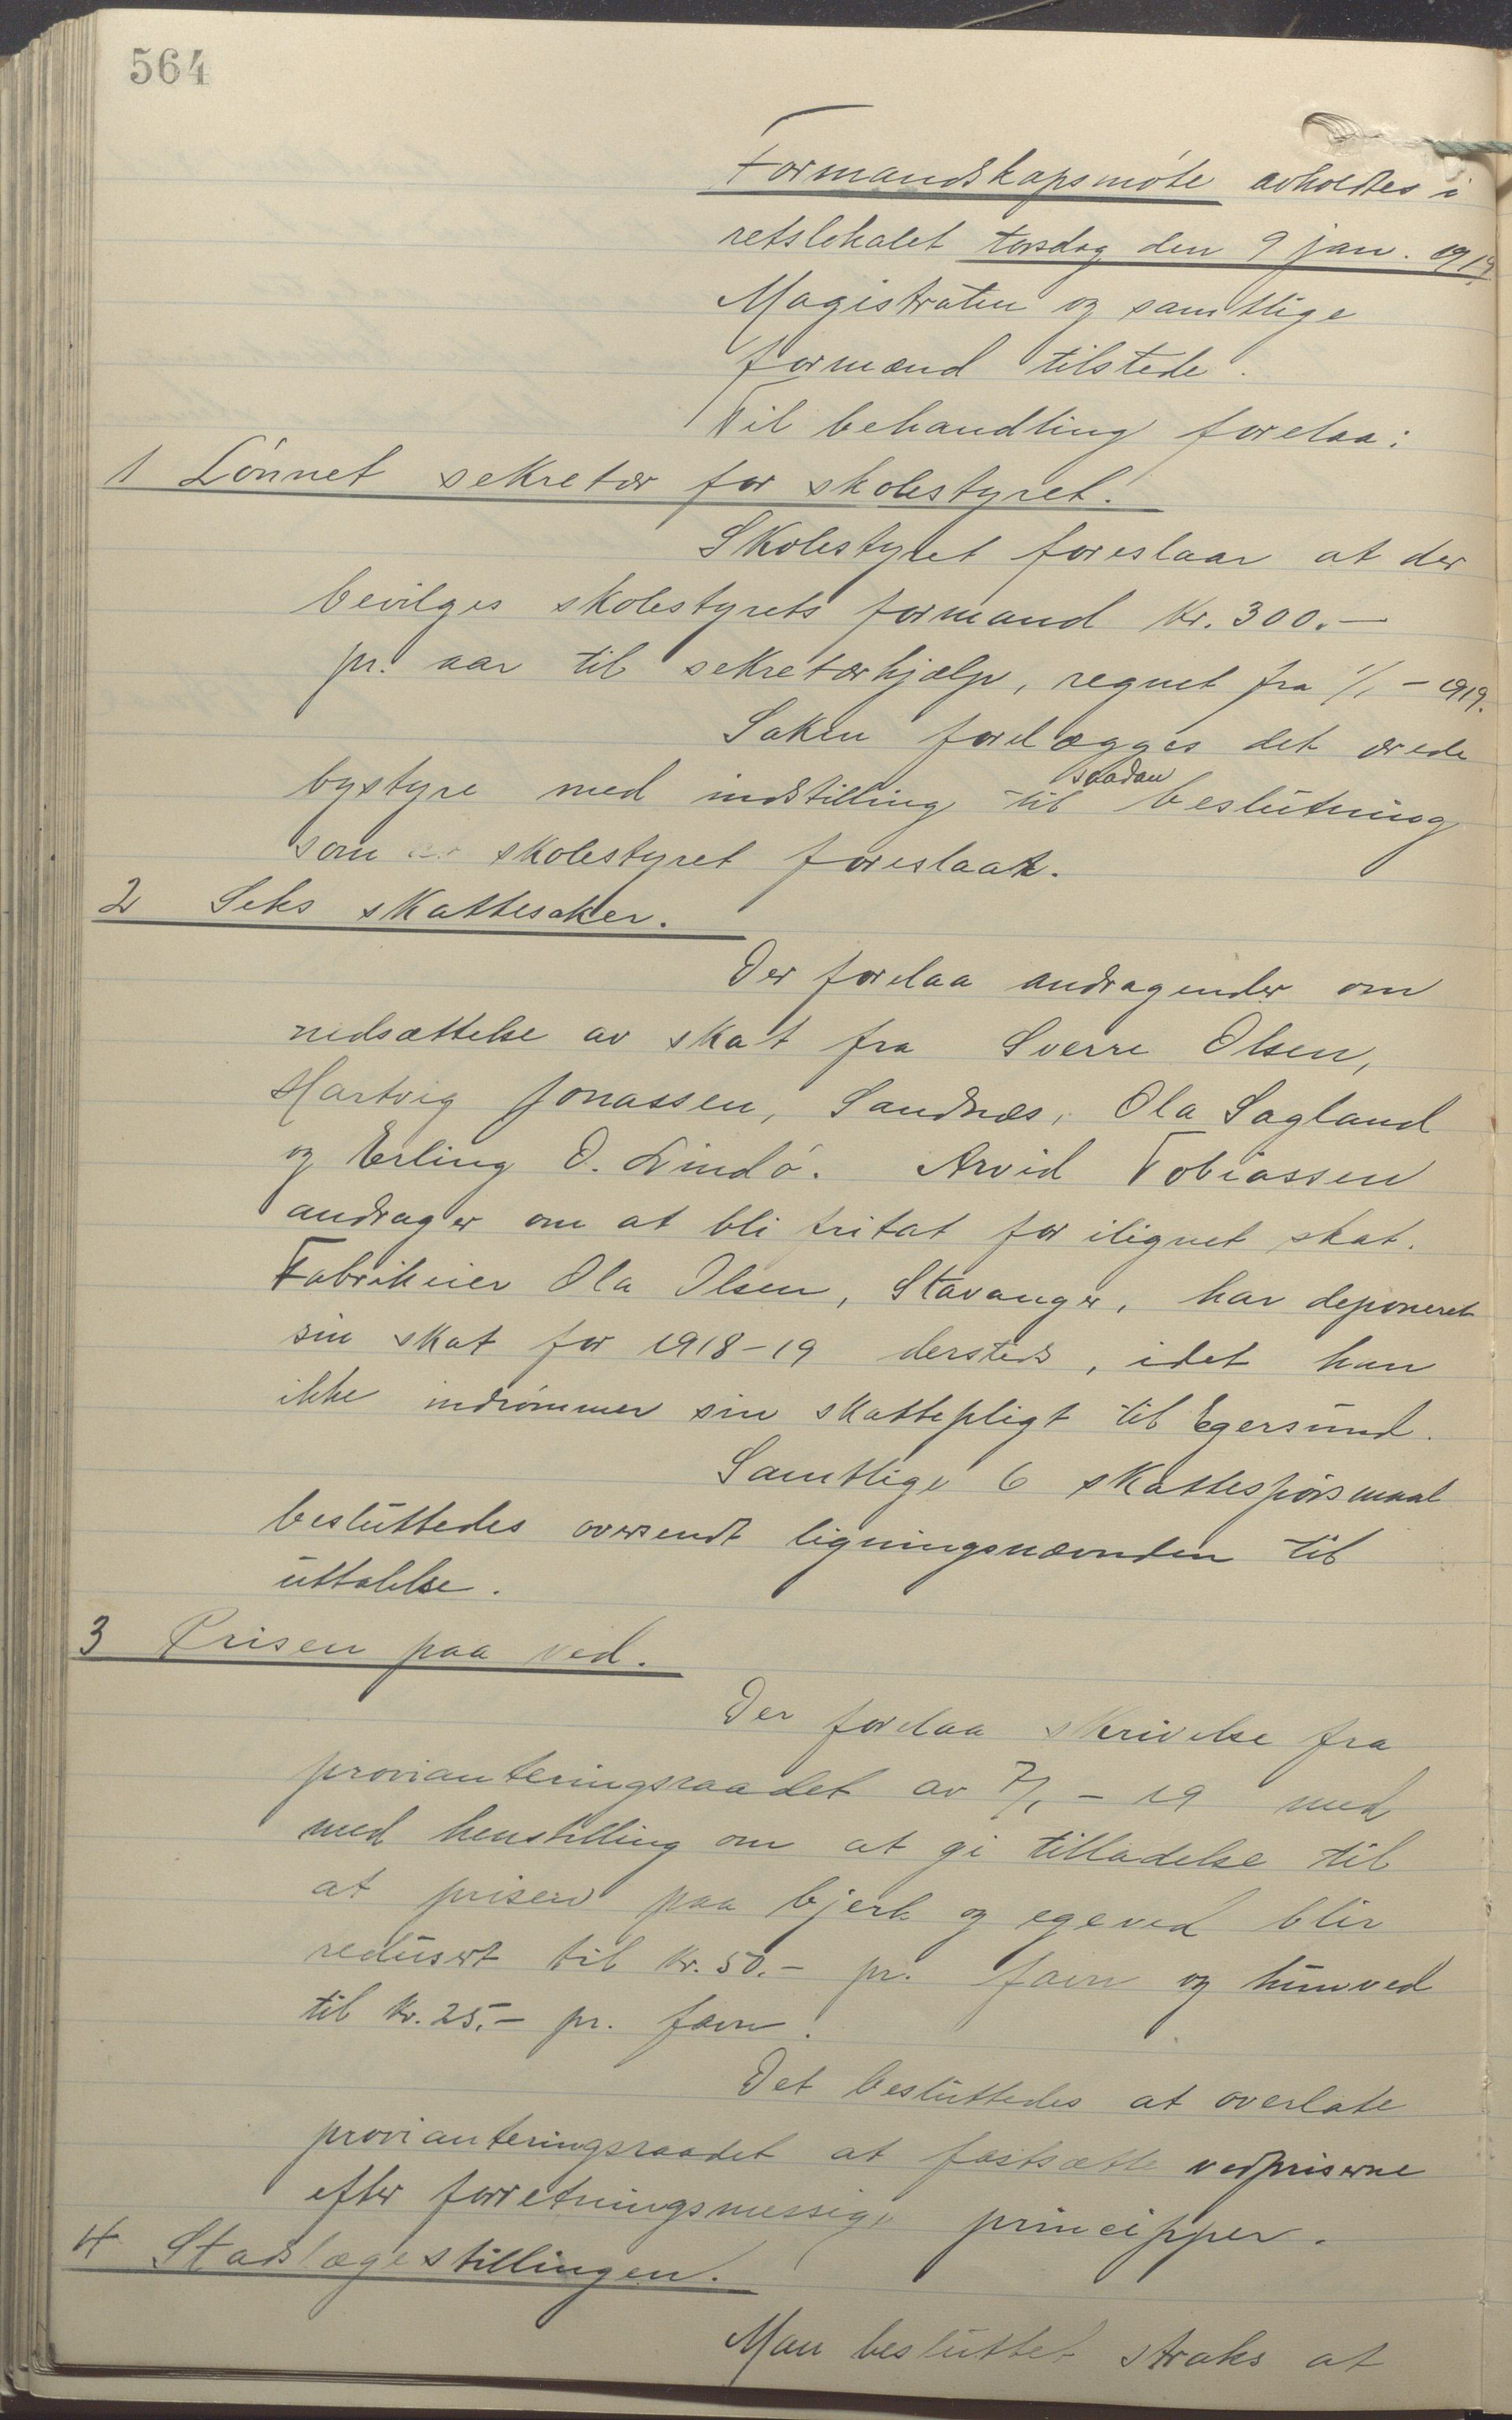 564
Formandskapsmøte avholdtes i
retslokalet torsdag den 9 jan. 1919.
Magistraten og samtlige
formænd tilstede.
Til behandling forelaa:
1 Lønnet sekretær for skolestyret.
Skolestyret foreslaar at der
bevilges skolestyrets formand kr. 300.–
pr. aar til sekretærhjælp, regnet fra 1/1 – 1919.
Saken forelægges det ærede
bystyre med indstilling til saadan beslutning
som skolestyret foreslaar.
2 Seks skattesaker.
Der forelaa andragender om
nedsættelse av skat fra Sverre Olsen,
Hartvig Jonassen, Sandnæs, Ola Sagland
og Erling O. Lindø. Arvid Tobiassen
andrager om at bli fritat for ilignet skat.
Fabrikeier Ola Olsen, Stavanger, har deponeret
sin skat for 1918-19 dersteds, idet han
ikke indrømmer sin skattepligt til Egersund.
Samtlige 6 skattespørsmaal
besluttedes oversendt ligningsnævnden til
uttalelse.
3 Prisen paa ved.
Der forelaa skrivelse fra
provianteringsraadet av 7/1 – 19 med
med henstilling om at gi tilladelse til
at prisen paa bjerk og egeved blir
redusert til kr. 50.– pr. favn og hunved
til kr. 25.– pr. favn.
Det besluttedes at overlate
provianteringsraadet at fastsætte vedpriserne
efter forretningsmessige principper.
4 Stadslægestillingen.
Man besluttet straks at